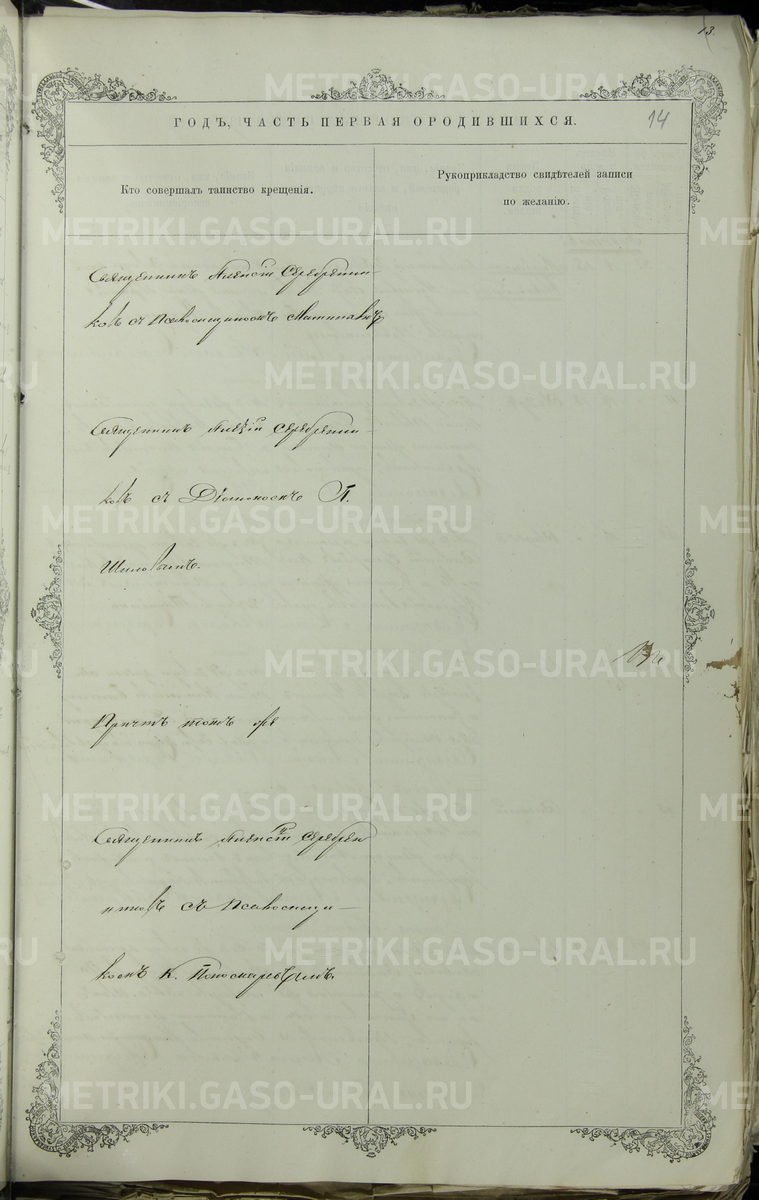 13.
14
ГОДЪ, ЧАСТЬ ПЕРВАЯ О РОДИВШИХСЯ.
Кто совершалъ таинство крещенія.
Рукоприкладство свидѣтелей записи
по желанію.
Священникъ Алексій Серебренни-
ковъ съ Псаломщикомъ
Священникъ Алексій Серебренни-
ковъ съ Діакономъ П.
Шиловымъ.
Причтъ тотъ же
Священникъ Алексій Серебрен
никовъ съ Псаломщи-
комъ К. Пономаревымъ.
METRIKI.GASO-URAL.RU